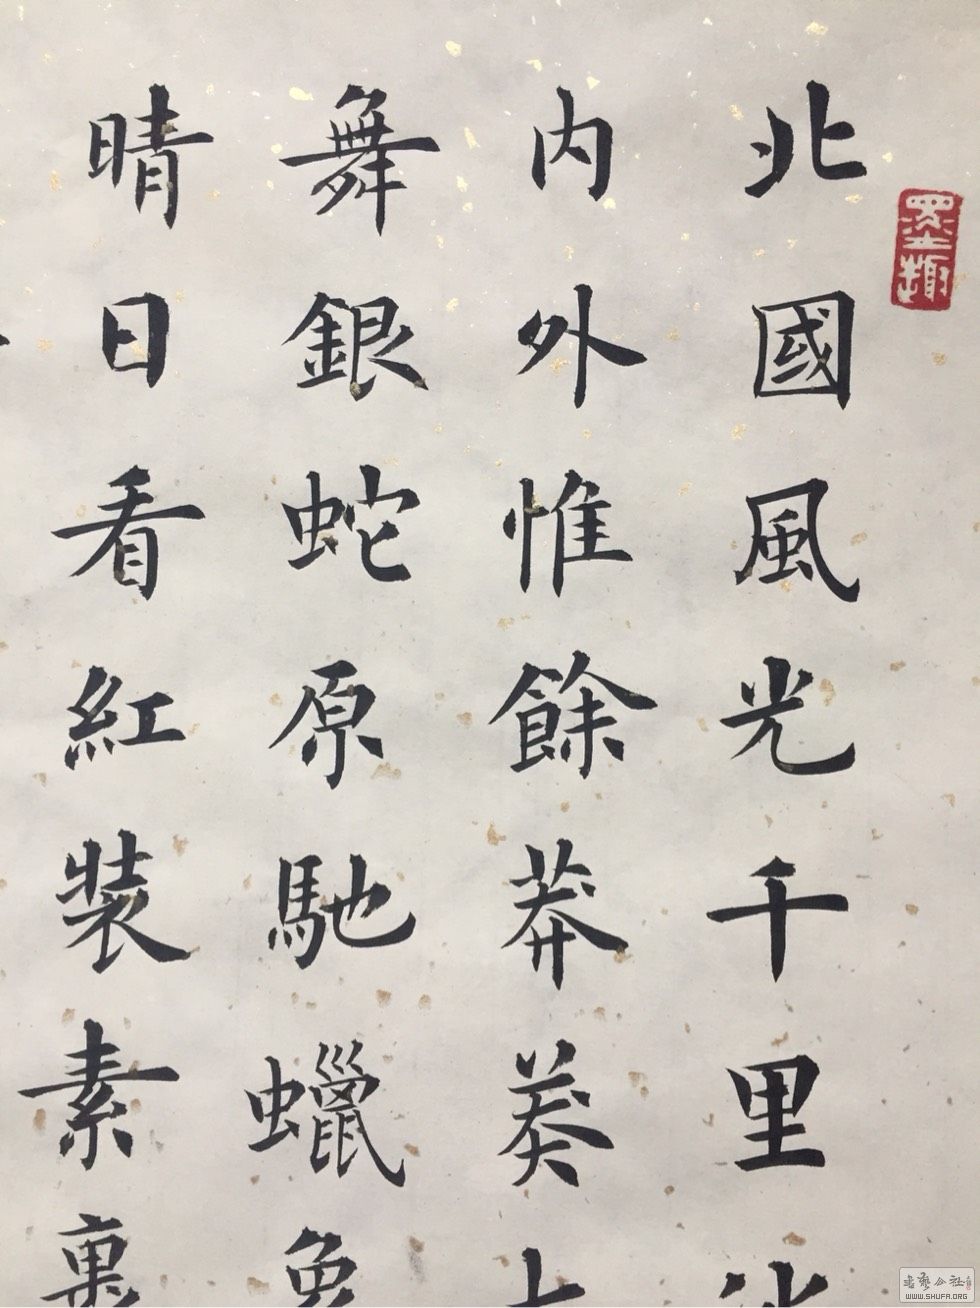 墨趣
北國風光千里
内外惟餘莽莽
舞銀蛇原馳蠟象
晴日看紅裝素裹
書藝公社
WWW.SHUFA.ORG